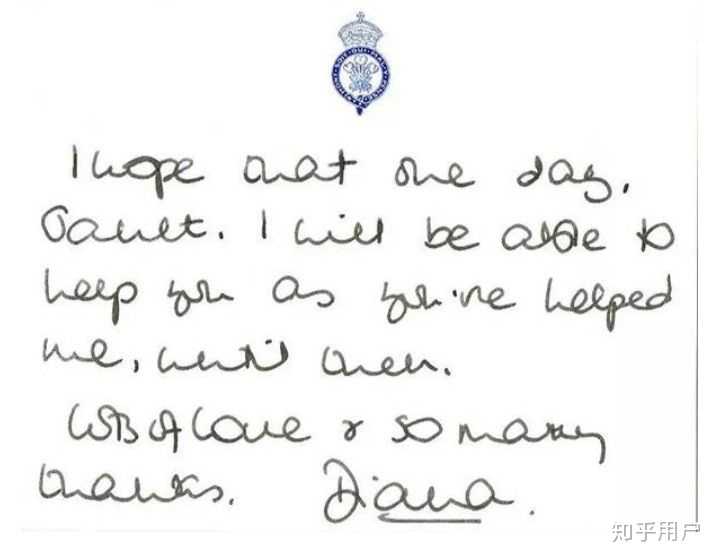 I hope that one day,
I will be able to
help you as you've helped
me, until then.
Lots of love & so many
thanks. Diana.
知乎用户